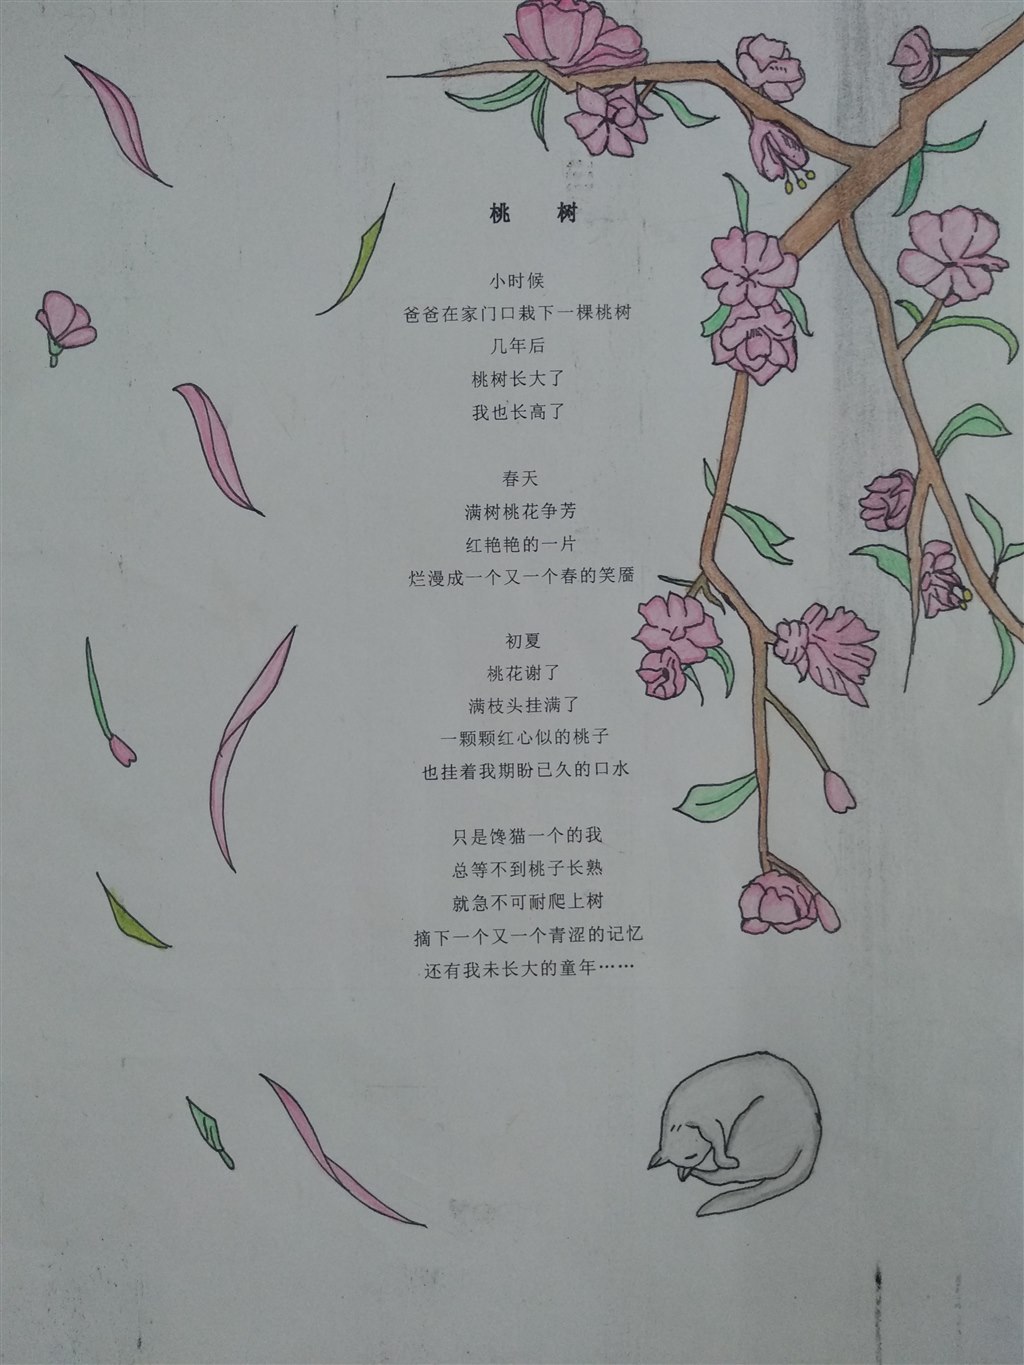 桃 树
小时候
爸爸在家门口栽下一棵桃树
几年后
桃树长大了
我也长高了
春天
满树桃花争芳
红艳艳的一片
烂漫成一个又一个春的笑靥
初夏
桃花谢了
满枝头挂满了
一颗颗红心似的桃子
也挂着我期盼已久的口水
只是馋猫一个的我
总等不到桃子长熟
就急不可耐爬上树
摘下一个又一个青涩的记忆
还有我未长大的童年……